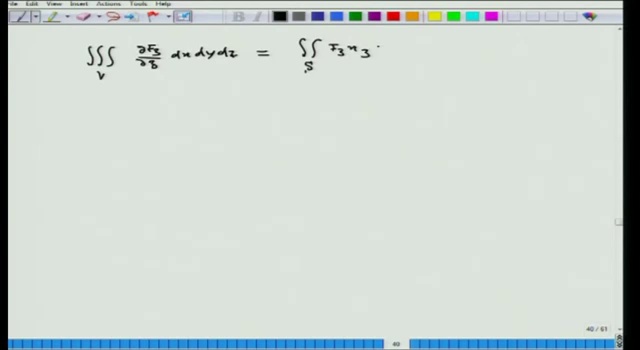 File Edit View Insert Actions Tools Help
∭_V ∂F₃/∂z dx dy dz = ∬_S F₃ n₃ ·
40 / 61
40